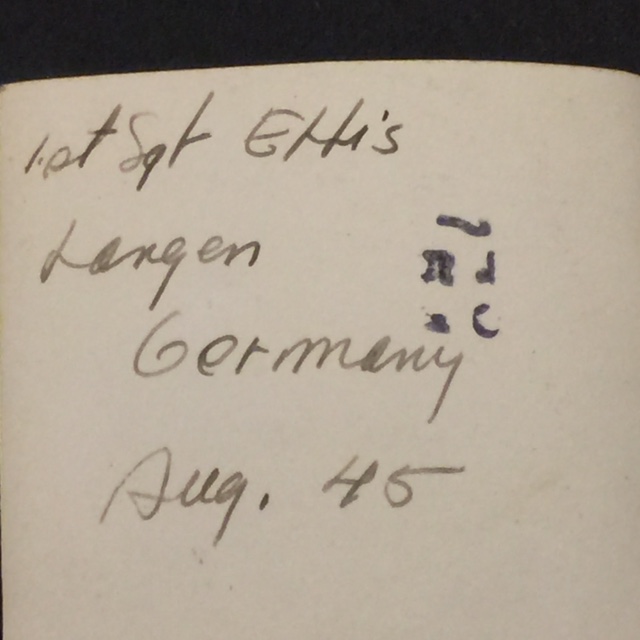 1.st Sgt Ellis
Langen
Germany
Aug. 45